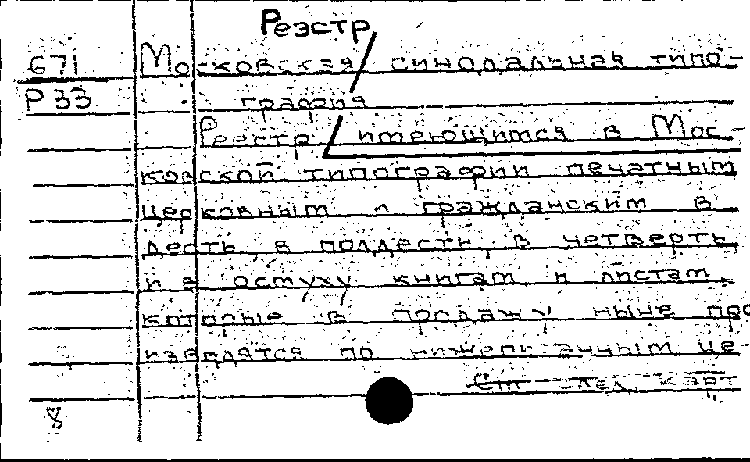 Реэстр
671 Московская синодальная типо-
Р33 графия
Реестр имеющимся в Мос-
ковской типографии печатным
церковным и гражданским в
десть, в полдесть, в четверть
и в осмуху книгам и листам,
которые в продажу ныне про
изводятся по нижеписанным це-
См. след. карт
8